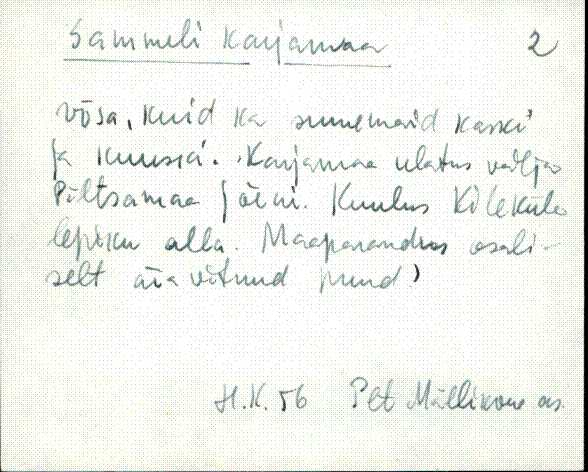 Sammeli Karjamaa 2
võsa, kuid ka suuremaid kaski
ja kuuski. Karjamaa ulatus välja
Põltsamaa jõeni. Kuulus Kileküla
lepiku alla. Maaparandus osali-
selt ära võtnud puud)
H.K. 56 Plt Mällikvere as.